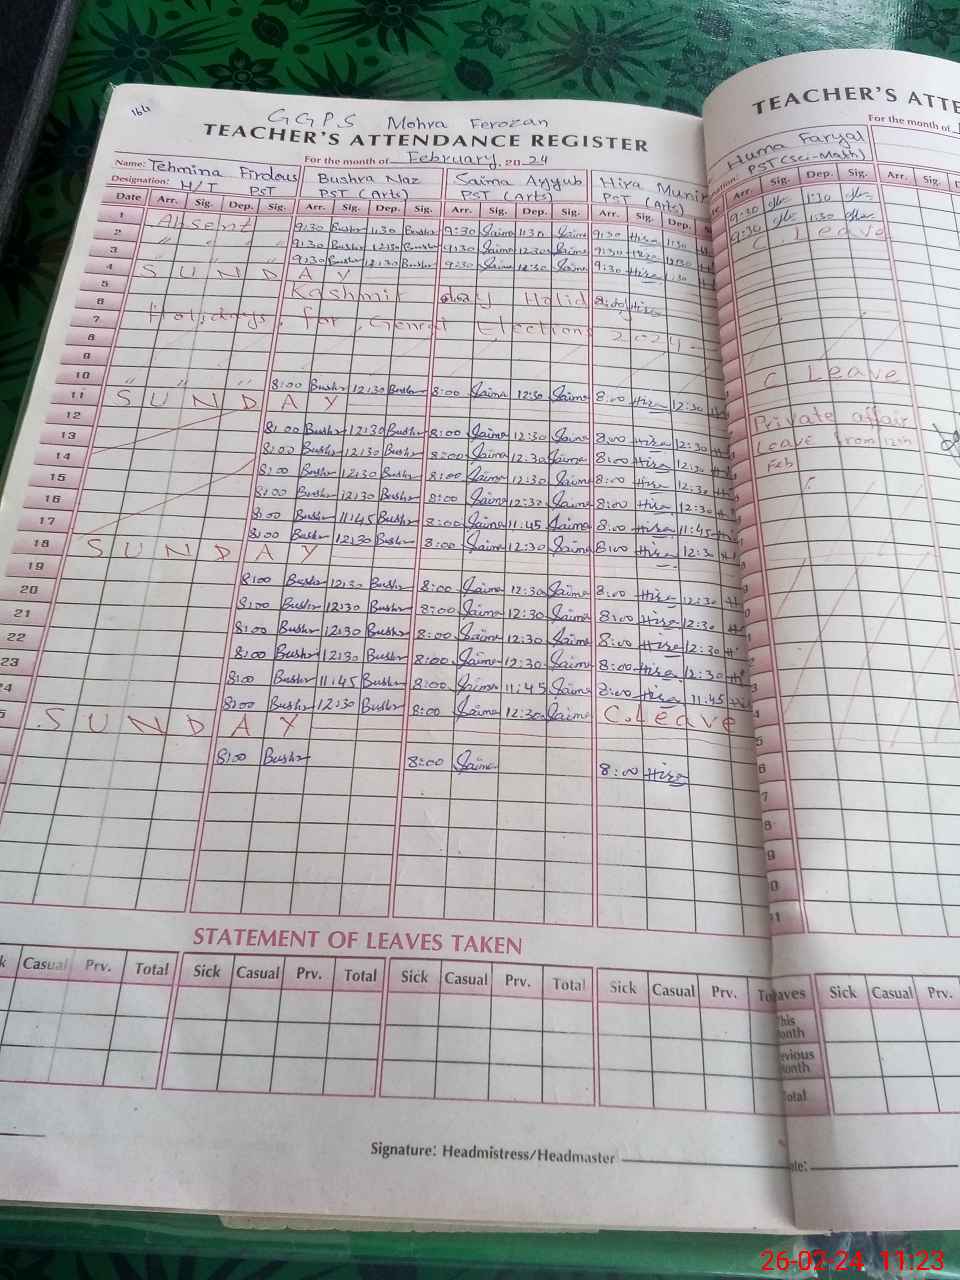 164
G G P S Mohra Ferozan
TEACHER'S ATTENDANCE REGISTER
For the month of February, 20 24
Name: Tehmina Firdous Bushra Naz Saima Ayyub Hira Munir
Designation: H/T PST PST (Arts) PST (Arts) PST (Arts)
Date Arr. Sig. Dep. Sig. Arr. Sig. Dep. Sig. Arr. Sig. Dep. Sig. Arr. Sig. Dep.
1 Absent 9:30 Bushr 1:30 Bushr 9:30 Saima 1:30 Saima 9:30 Hira 1:30
2 " " " " 9:30 Bushr 12:30 Bushr 9:30 Saima 12:30 Saima 9:30 Hira 12:30
3 " " " " 9:30 Bushr 12:30 Bushr 9:30 Saima 12:30 Saima 9:30 Hira 1:30
4 S U N D A Y
5 Kashmir day Holid 8:00 Hira
6 Holidays for Genral Elections 2024
7
8
9
10 " " " 8:00 Bushr 12:30 Bushr 8:00 Saima 12:30 Saima 8:00 Hira 12:30
11 S U N D A Y
12 8:00 Bushr 12:30 Bushr 8:00 Saima 12:30 Saima 8:00 Hira 12:30
13 8:00 Bushr 12:30 Bushr 8:00 Saima 12:30 Saima 8:00 Hira 12:30
14 8:00 Bushr 12:30 Bushr 8:00 Saima 12:30 Saima 8:00 Hira 12:30
15 8:00 Bushr 12:30 Bushr 8:00 Saima 12:30 Saima 8:00 Hira 12:30
16 8:00 Bushr 11:45 Bushr 8:00 Saima 11:45 Saima 8:00 Hira 11:45
17 8:00 Bushr 12:30 Bushr 8:00 Saima 12:30 Saima 8:00 Hira 12:30
18 S U N D A Y
19 8:00 Bushr 12:30 Bushr 8:00 Saima 12:30 Saima 8:00 Hira 12:30
20 8:00 Bushr 12:30 Bushr 8:00 Saima 12:30 Saima 8:00 Hira 12:30
21 8:00 Bushr 12:30 Bushr 8:00 Saima 12:30 Saima 8:00 Hira 12:30
22 8:00 Bushr 12:30 Bushr 8:00 Saima 12:30 Saima 8:00 Hira 12:30
23 8:00 Bushr 11:45 Bushr 8:00 Saima 11:45 Saima 8:00 Hira 11:45
24 8:00 Bushr 12:30 Bushr 8:00 Saima 12:30 Saima C. Leave
5 S U N D A Y
8:00 Bushr 8:00 Saima 8:00 Hira
STATEMENT OF LEAVES TAKEN
k Casual Prv. Total Sick Casual Prv. Total Sick Casual Prv. Total Sick Casual Prv. To
Signature: Headmistress/Headmaster
TEACHER'S ATTE
For the month of
Huma Faryal
PST (Sci-Math)
Arr. Sig. Dep. Sig. Arr. Sig. D
9:30 1:30
9:30 1:30
C Leave
C Leave
Private affair
Leave from 12th
Feb
5
6
7
8
9
0
1
aves Sick Casual Prv.
This
onth
evious
onth
otal
te:
26-02-24 11:23